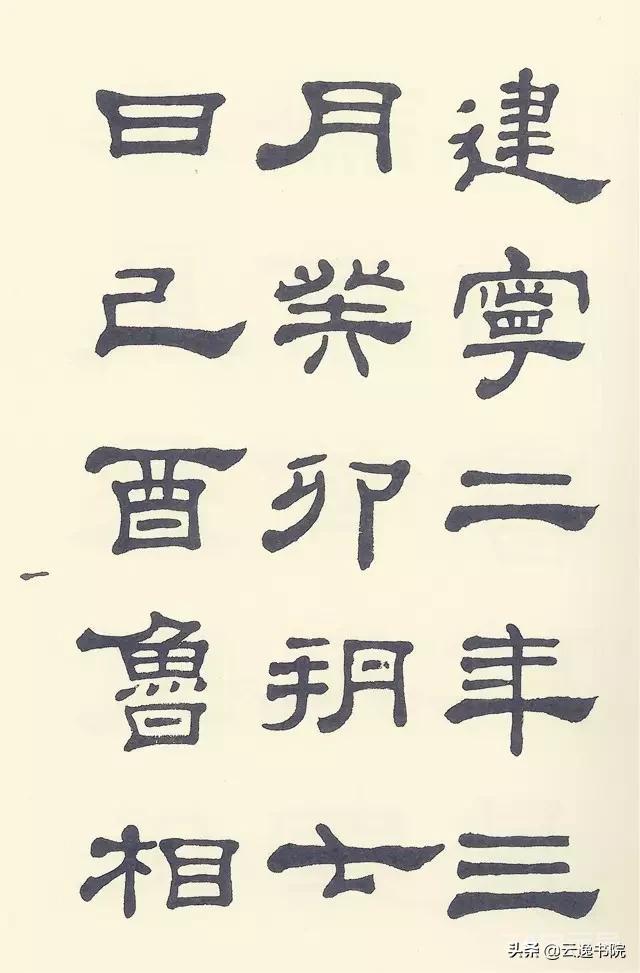 建寧二年三
月癸卯朔七
日己酉魯相
一
头条 @云逸书院